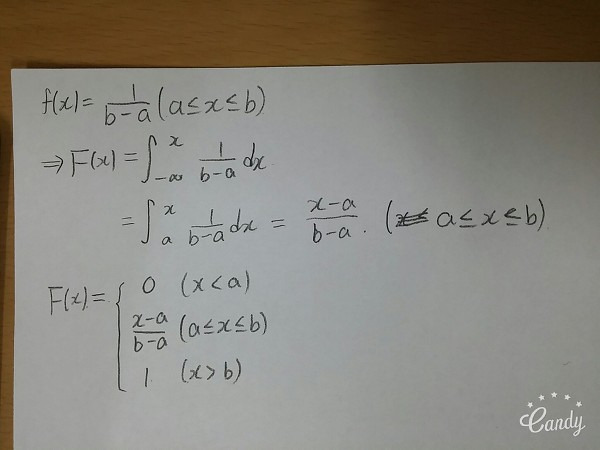 f(x) = 1/(b-a) (a≤x≤b)
⇒ F(x) = ∫_{-∞}^{x} 1/(b-a) dx
= ∫_{a}^{x} 1/(b-a) dx = (x-a)/(b-a) . ( a≤x≤b)
F(x) = { 0 (x<a)
(x-a)/(b-a) (a≤x≤b)
1 (x>b)
Candy